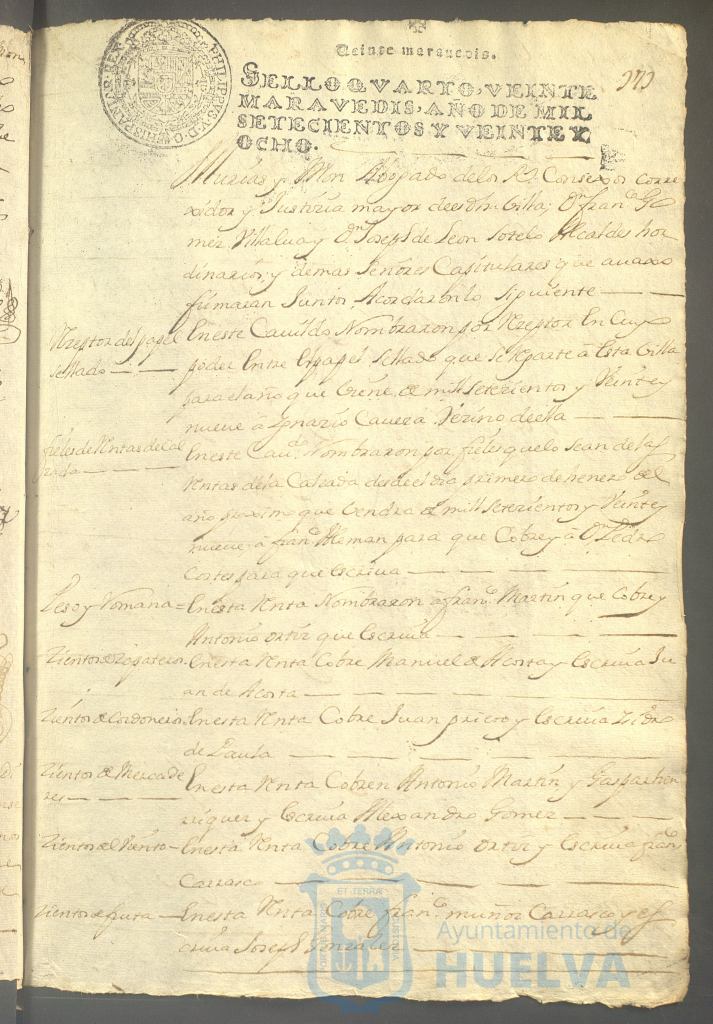 Veinte marauedis.
373
SELLO QVARTO, VEINTE
MARAVEDIS, AÑO DE MIL
SETECIENTOS Y VEINTE Y
OCHO.
PHILIPPUS V D G
Murias y Mon Abogado de los Rs Consexos corre
xidor y Justizia mayor deesta dha Villa; Dn franco Go
mez Villalua y Dn Joseph de Leon sotelo Alcaldes hor
dinarios y demas Señores Capitulares que auaxo
firmaran Juntos Acordaron lo siguiente
Rzeptor del papel
sellado
En este Cauildo Nombraron por Rzeptor En Cuyo
poder Entre El papel sellado que se Reparte â Esta Villa
para el año que Viene de mill seterientos y Veinte y
nueue â Ignazio Cauera Vezino de ella
fieles de Rentas de Cal
zada
En este Caudo Nombraron por fieles que lo sean de las
Rentas de la Calzada desde el dia primero de henero del
año proximo que Vendra de mill seterientos y Veinte y
nueue â franco Aleman para que Cobre y â Dn Pedro
Cortes para que Escriua
Peso y Romana =
En esta Renta Nombraron a franco Martin que Cobre y
Antonio ortiz que Escriua
Zientos de Zapateros
En esta Renta Cobre Manuel de Acosta y Escriua Ju
an de Acosta
Zientos de Cordoneros
En esta Renta Cobre Juan prieto y Escriua
de Paula
Zientos de Mercade
res
En esta Renta Cobren Antonio Martin y Gaspar hen
riquez y Escriua Alexandro Gomez
Zientos del Viento
En esta Renta Cobre Antonio ortiz y Escriua franco
Carrasco
Zientos de fruta
En esta Renta Cobre franco muñoz Carrasco y es
criua Joseph Gonzalez
Ayuntamiento de
HUELVA